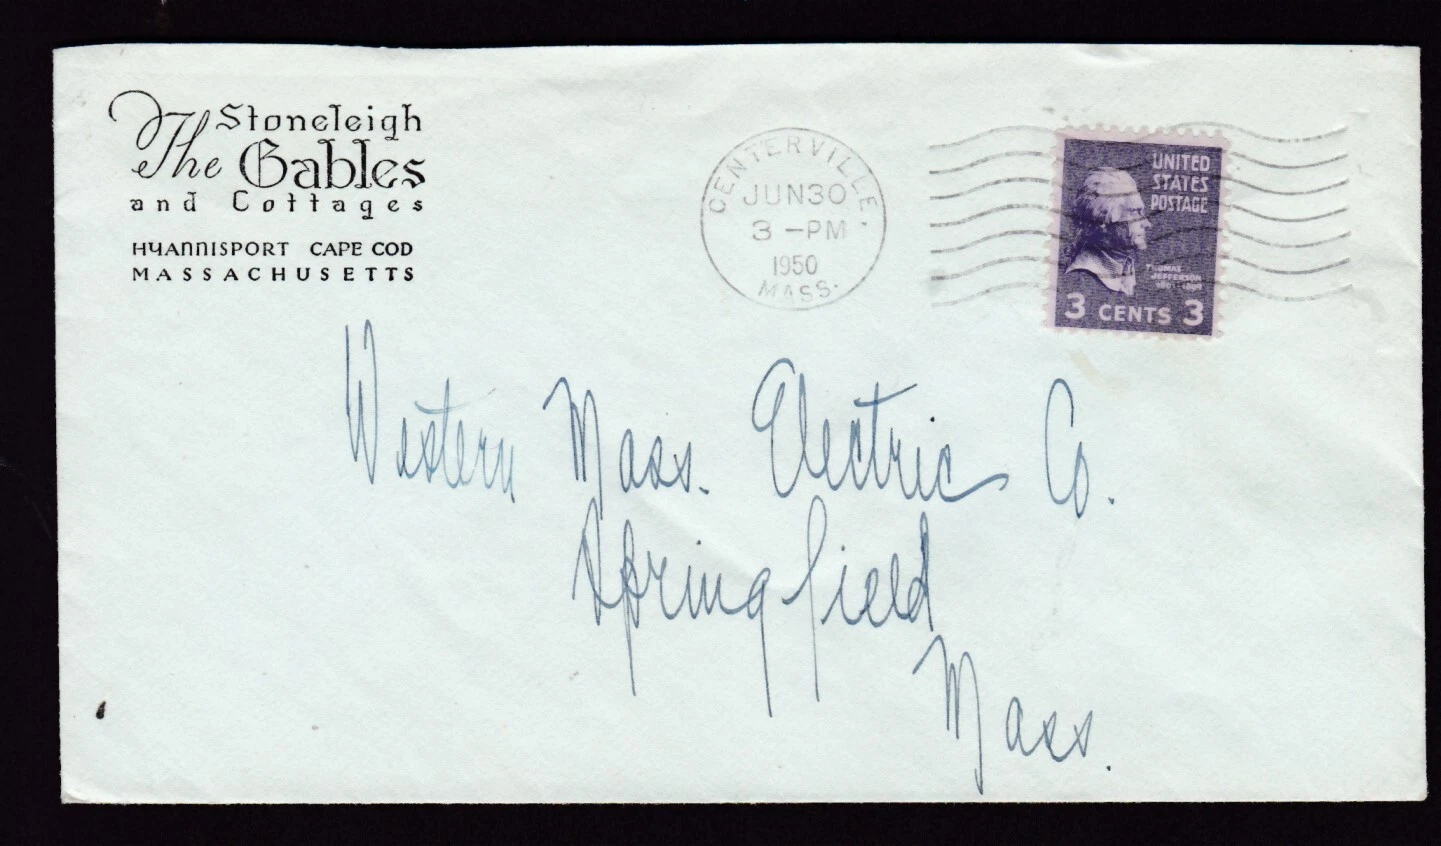 Stoneleigh
The Gables
and Cottages
HYANNISPORT CAPE COD
MASSACHUSETTS
CENTERVILLE,
JUN 30
3 -PM
1950
MASS.
UNITED
STATES
POSTAGE
THOMAS
JEFFERSON
3 CENTS 3
Western Mass. Electric Co.
Springfield
Mass.